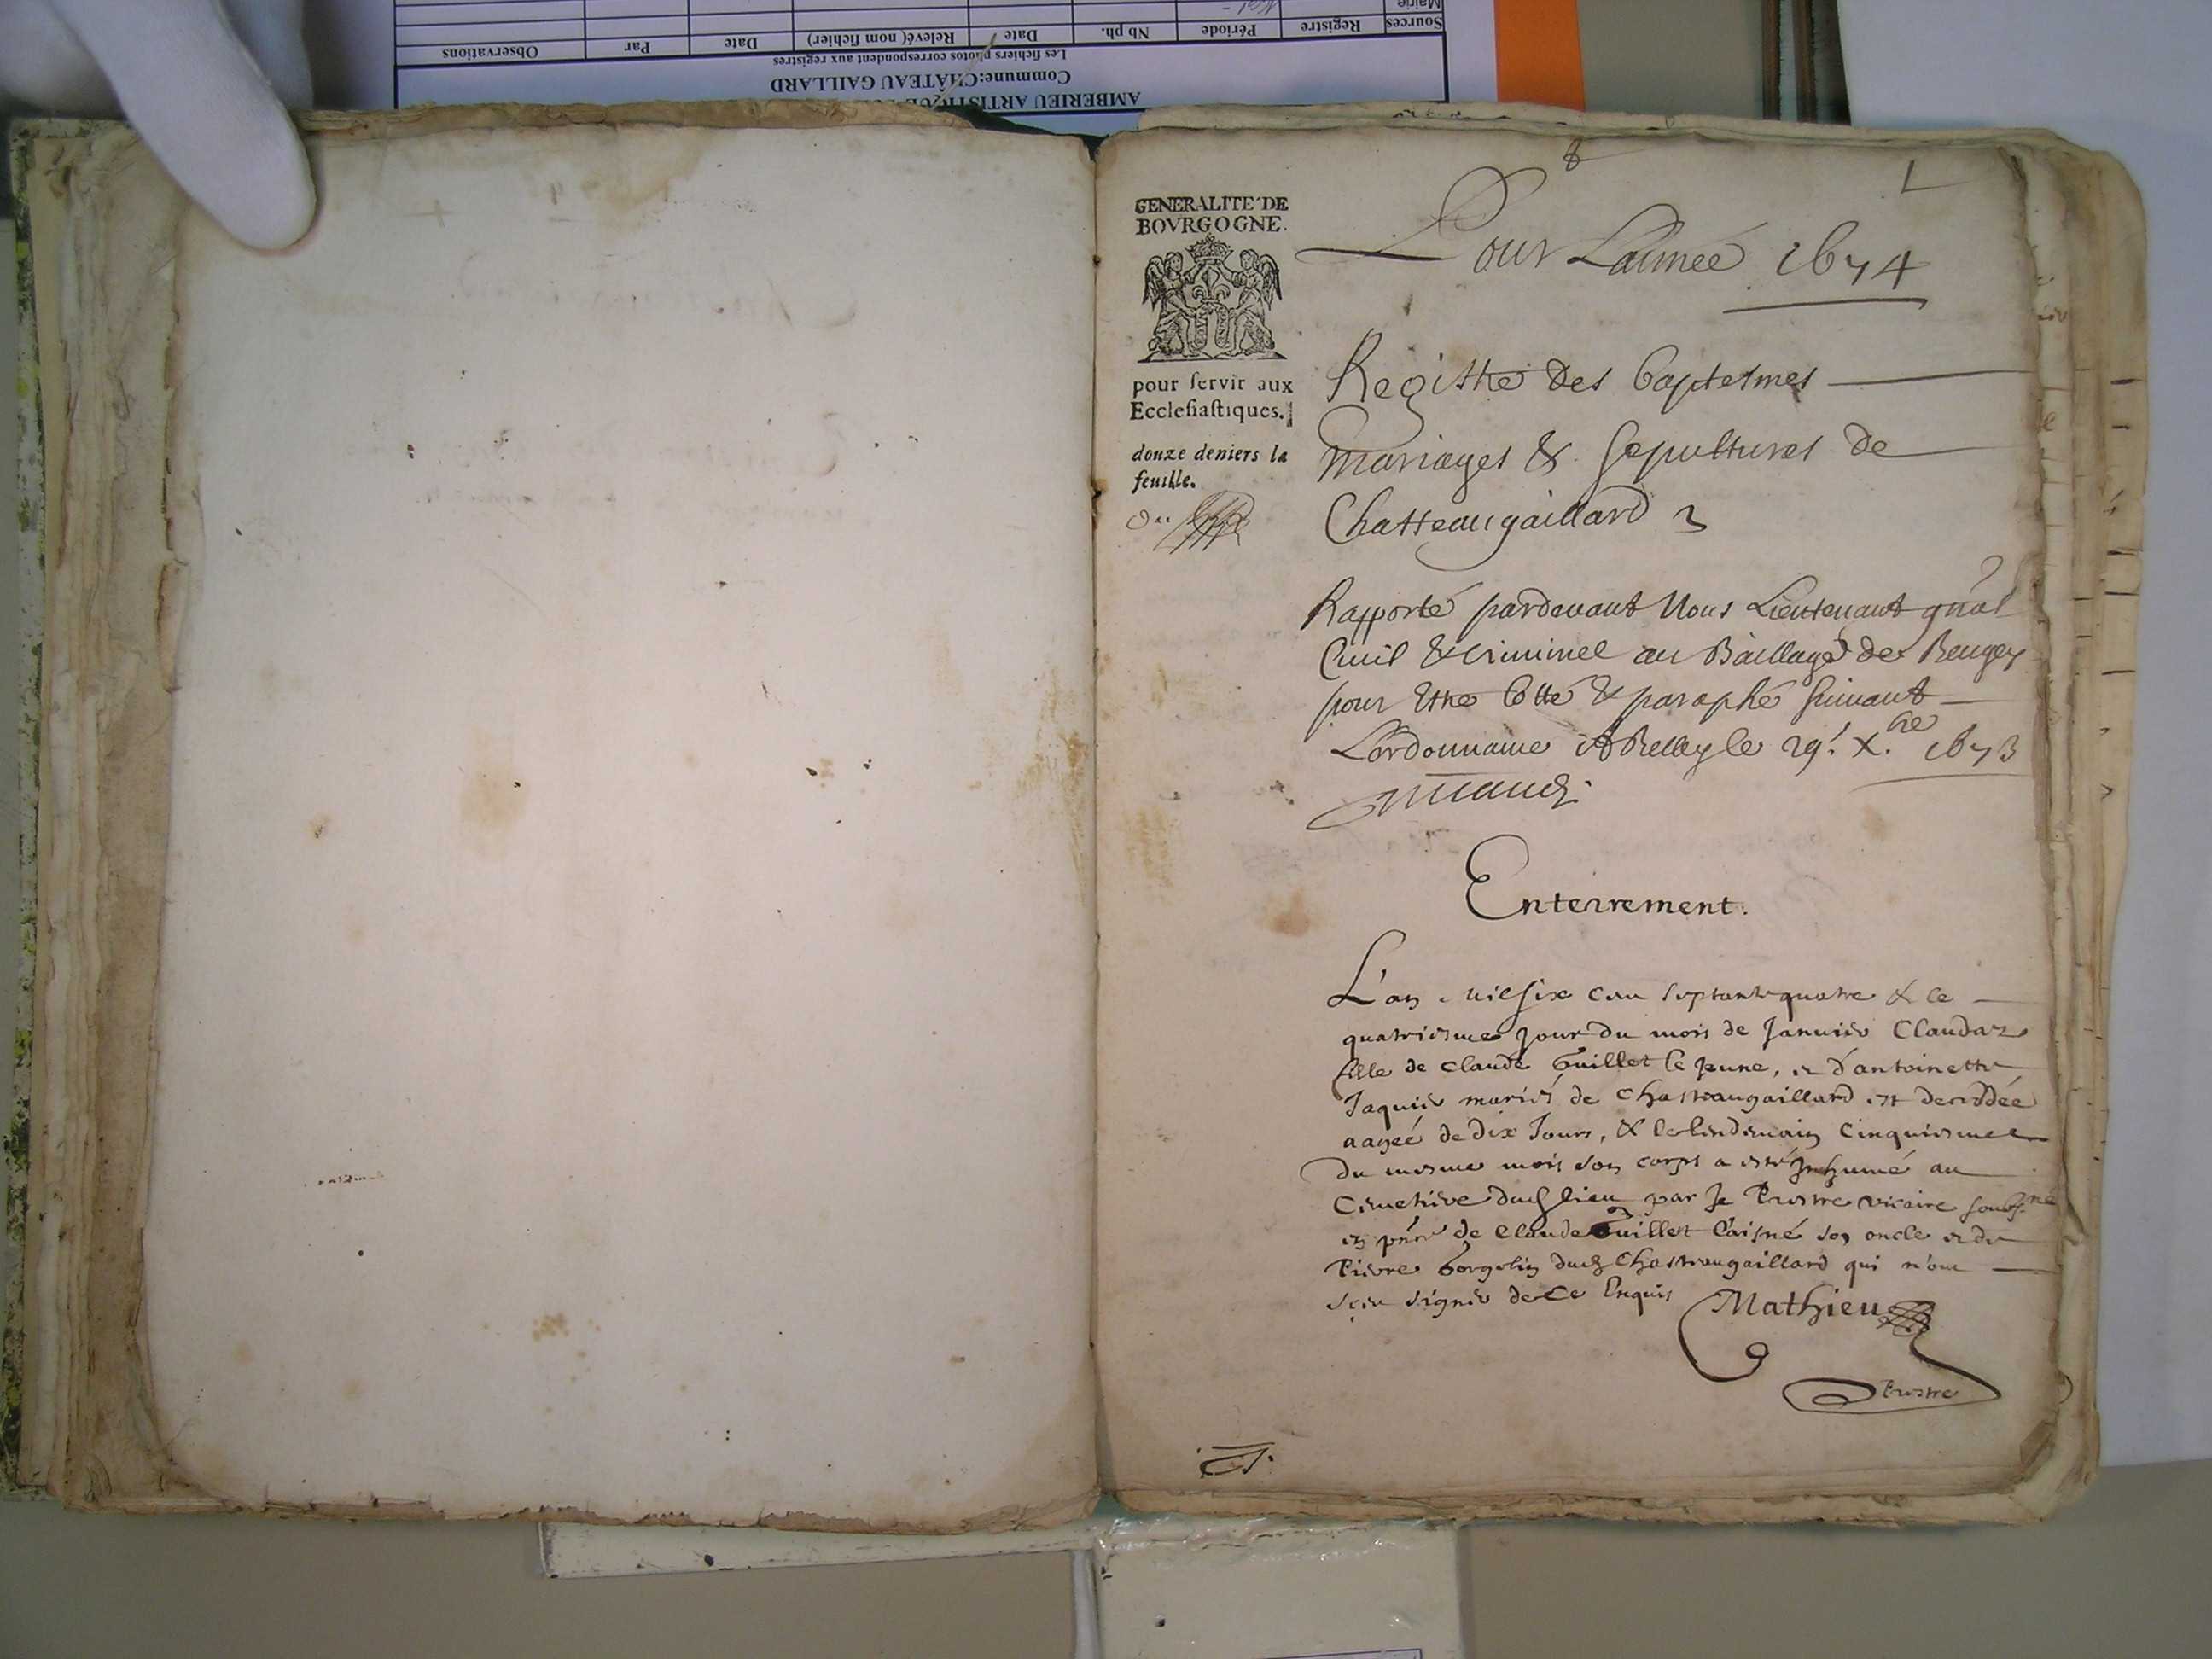 AMBERIEU ARTISTIQUE
Commune:CHÂTEAU GAILLARD
Les fichiers photos correspondent aux registres
Sources Registre Période Nb ph. Date Relevé(nom fichier) Date Par Observations
Mairie
GENERALITE DE
BOVRGOGNE.
pour servir aux
Ecclesiastiques.
douze deniers la
feuille.
1
Pour Lannée 1674
Registre des baptesmes
mariages & sepultures de
Chatteaugaillard
Rapporté pardevant Nous Lieutenant gñal
Civil & criminel au Baillage de Beugey
pour Etre Cotté & paraphé suivant
Lordonnance A Belley le 29e Xbre 1673
Enterrement.
L'an mil six cens septante quatre & le
quatriesme jour du mois de Janvier Claudaz
fille de Claude Guillet le jeune, et d'antoinette
Jaquier mariés de Chasteaugaillard est decedée
aageé de dix Jours, & le lendemain Cinquiesme
du mesme mois son corps a esté Inhumé au
Cimetiere dud lieu par Je Prestre vicaire soubsné
en pñce de Claude Guillet l'aisné son oncle et de
Pierre Gorgolin dud Chasteaugaillard qui n'ont
sceu signer de ce Enquis Mathieu
Prestre